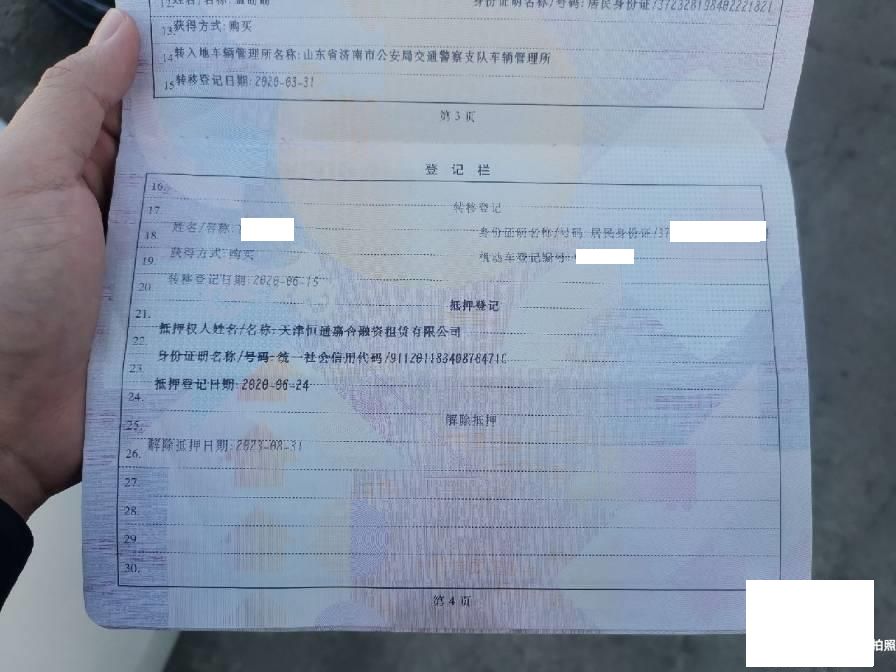 获得方式:购买
14 转入地车辆管理所名称:山东省济南市公安局交通警察支队车辆管理所
15 转移登记日期:2020-03-31
第 3 页
登 记 栏
16.
17. 转移登记
18. 姓名/名称: 身份证明名称/号码:居民身份证/37
19. 获得方式:购买 机动车登记编号:
20. 转移登记日期:2020-06-15
21. 抵押登记
22. 抵押权人姓名/名称:天津恒通嘉合融资租赁有限公司
23. 身份证明名称/号码:统一社会信用代码/
24. 抵押登记日期:2020-06-24
25. 解除抵押
26. 解除抵押日期:2023-08-31
27.
28.
29.
30.
第 4 页
拍照